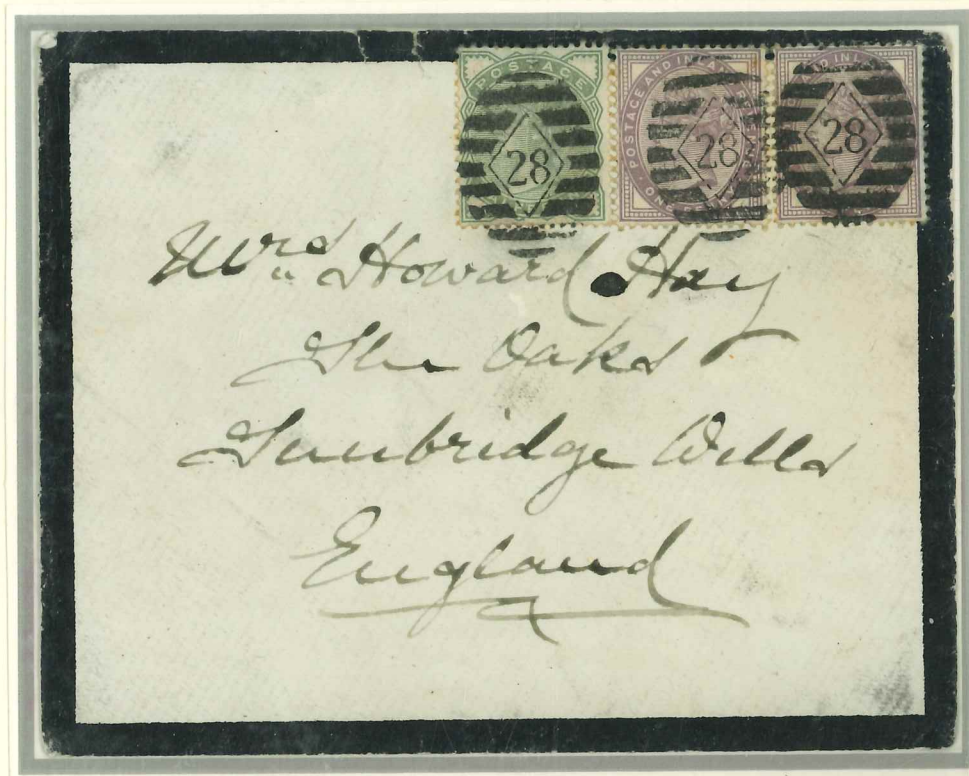 POSTAGE
POSTAGE AND INLAND REVENUE
28 28 28
Mrs Howard Hay
The Oaks
Tunbridge Wells
England